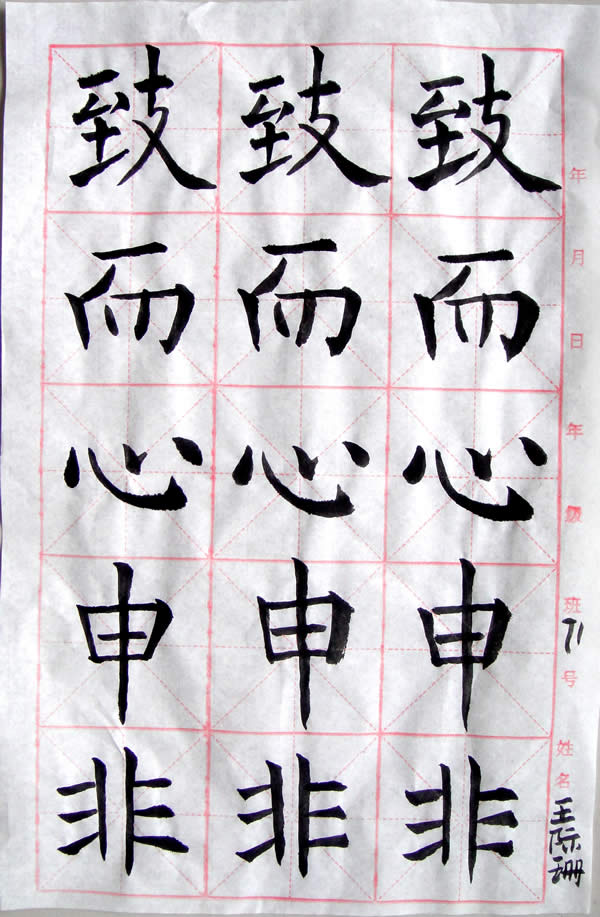 年月日年级班71号姓名王际珊
致而心申非
致而心申非
致而心申非